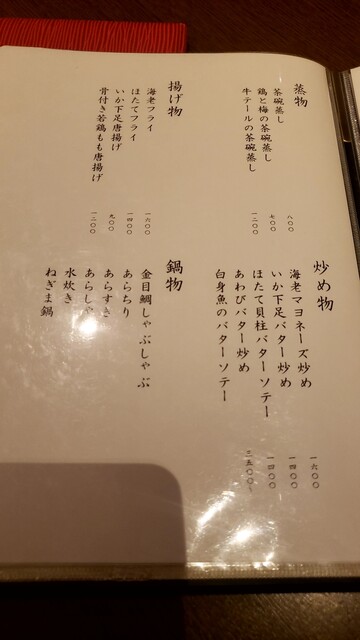 蒸物
茶碗蒸し 八〇〇
鶏と梅の茶碗蒸し 七〇〇
牛テールの茶碗蒸し 一二〇〇
揚げ物
海老フライ 一六〇〇
ほたてフライ 一四〇〇
いか下足唐揚げ 九〇〇
骨付き若鶏もも唐揚げ 一二〇〇
炒め物
海老マヨネーズ炒め 一六〇〇
いか下足バター炒め 一四〇〇
ほたて貝柱バターソテー 一四〇〇
あわびバター炒め 二五〇〇~
白身魚のバターソテー
鍋物
金目鯛しゃぶしゃぶ
あらちり
あらすき
あらしゃ
水炊き
ねぎま鍋